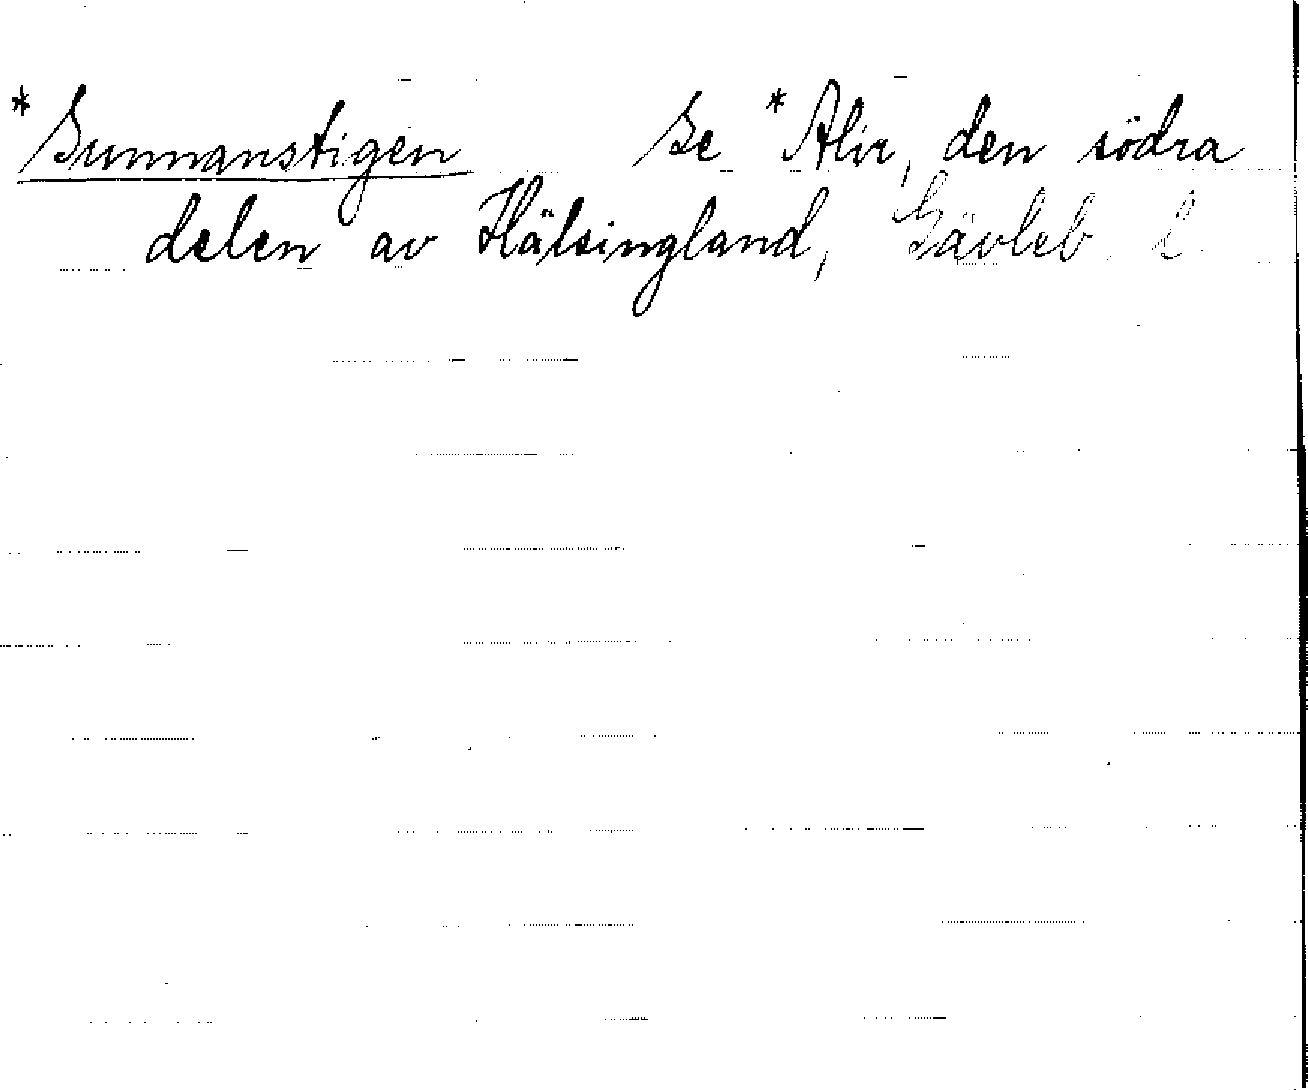 *Sunnanstigen Se *Alir, den södra
delen av Hälsingland, Gävleb. l.